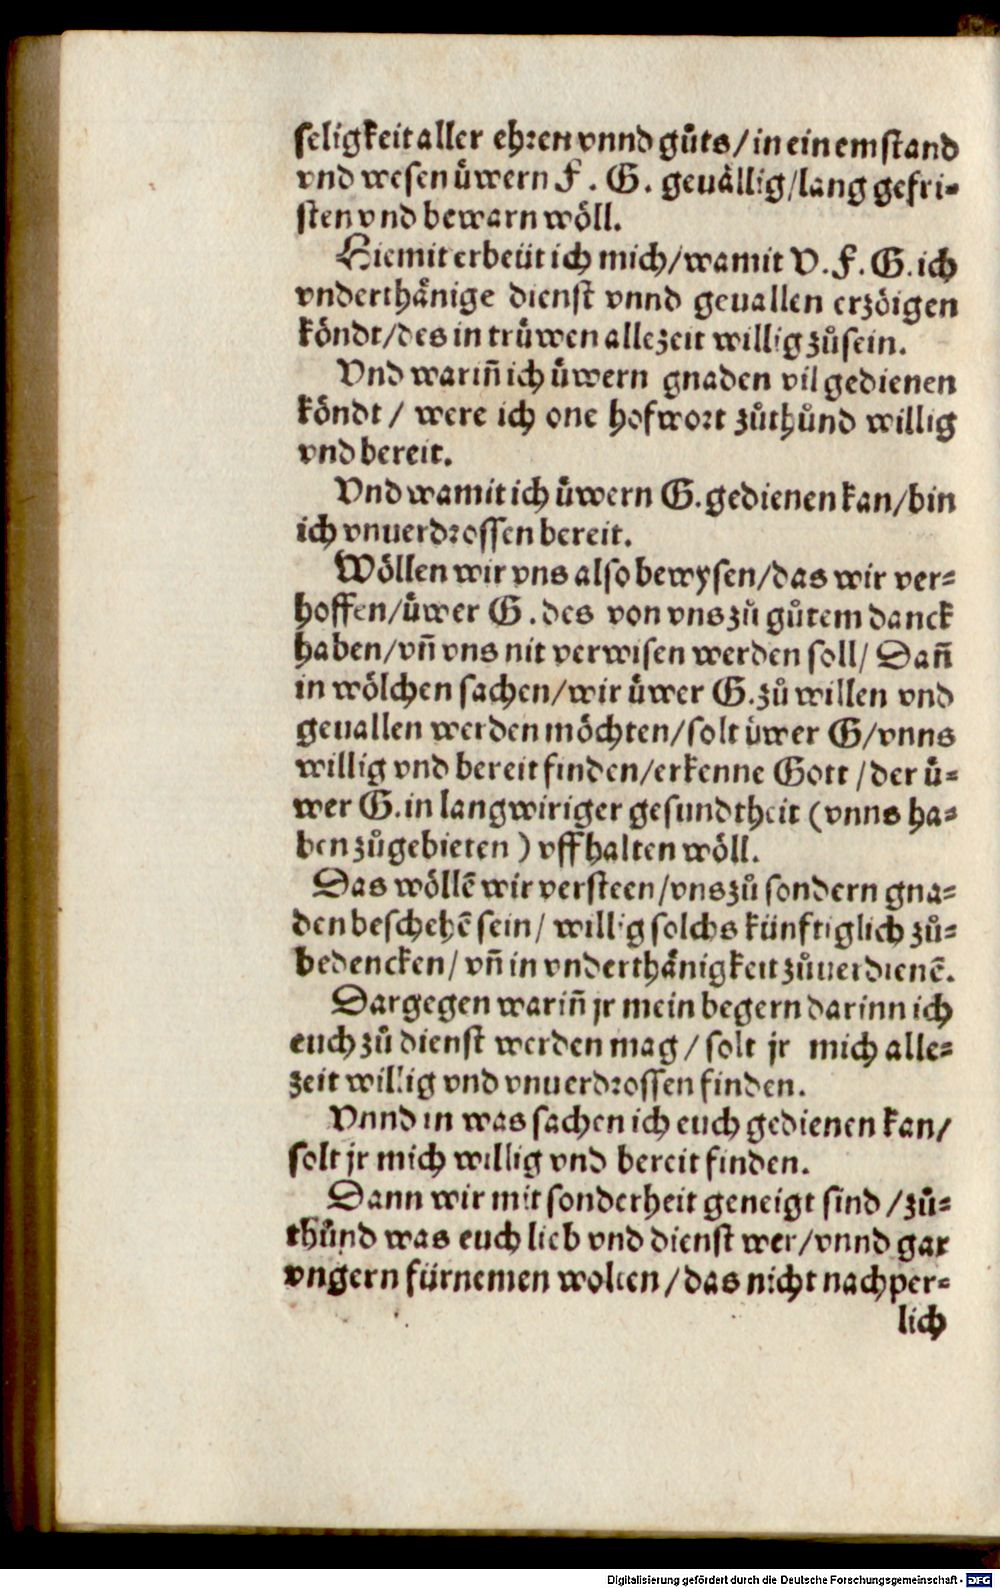 seligkeit aller ehren vnnd gůts / in einem stand
vnd wesen üwern F. G. geuällig / lang gefri-
sten vnd bewarn wöll.
Hiemit erbeüt ich mich / wamit V. F. G. ich
vnderthänige dienst vnnd geuallen erzöigen
köndt / des in trüwen allezeit willig zůsein.
Vnd wariñ ich üwern gnaden vil gedienen
köndt / were ich one hofwort zůthůnd willig
vnd bereit.
Vnd wamit ich üwern G. gedienen kan / bin
ich vnuerdrossen bereit.
Wöllen wir vns also bewysen / das wir ver-
hoffen / üwer G. des von vns zů gůtem danck
haben / vñ vns nit verwisen werden soll / Dañ
in wölchen sachen / wir üwer G. zů willen vnd
geuallen werden möchten / solt üwer G / vnns
willig vnd bereit finden / erkenne Gott / der ü-
wer G. in langwiriger gesundtheit (vnns ha-
ben zůgebieten) vffhalten wöll.
Das wöllē wir versteen / vns zů sondern gna-
den beschehē sein / willig solchs künftiglich zů-
bedencken / vñ in vnderthänigkeit zůuerdienē.
Dargegen wariñ jr mein begern darinn ich
euch zů dienst werden mag / solt jr mich alle-
zeit willig vnd vnuerdrossen finden.
Vnnd in was sachen ich euch gedienen kan /
solt jr mich willig vnd bereit finden.
Dann wir mit sonderheit geneigt sind / zů-
thůnd was euch lieb vnd dienst wer / vnnd gar
vngern fürnemen wolten / das nicht nachper-
lich
Digitalisierung gefördert durch die Deutsche Forschungsgemeinschaft - DFG